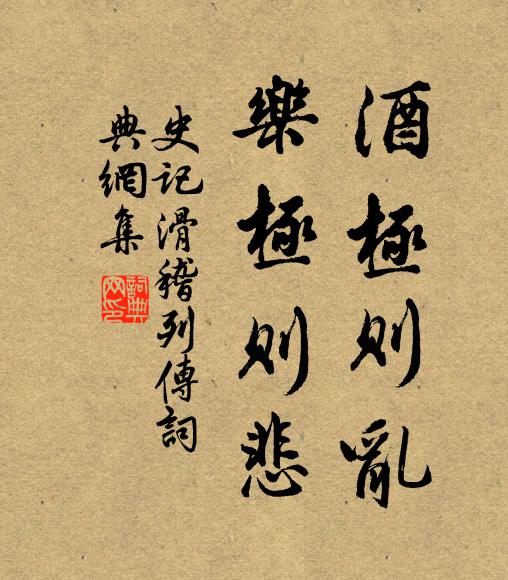 酒極則亂
樂極則悲
史記滑稽列傳詞
典網集
詞典
网印